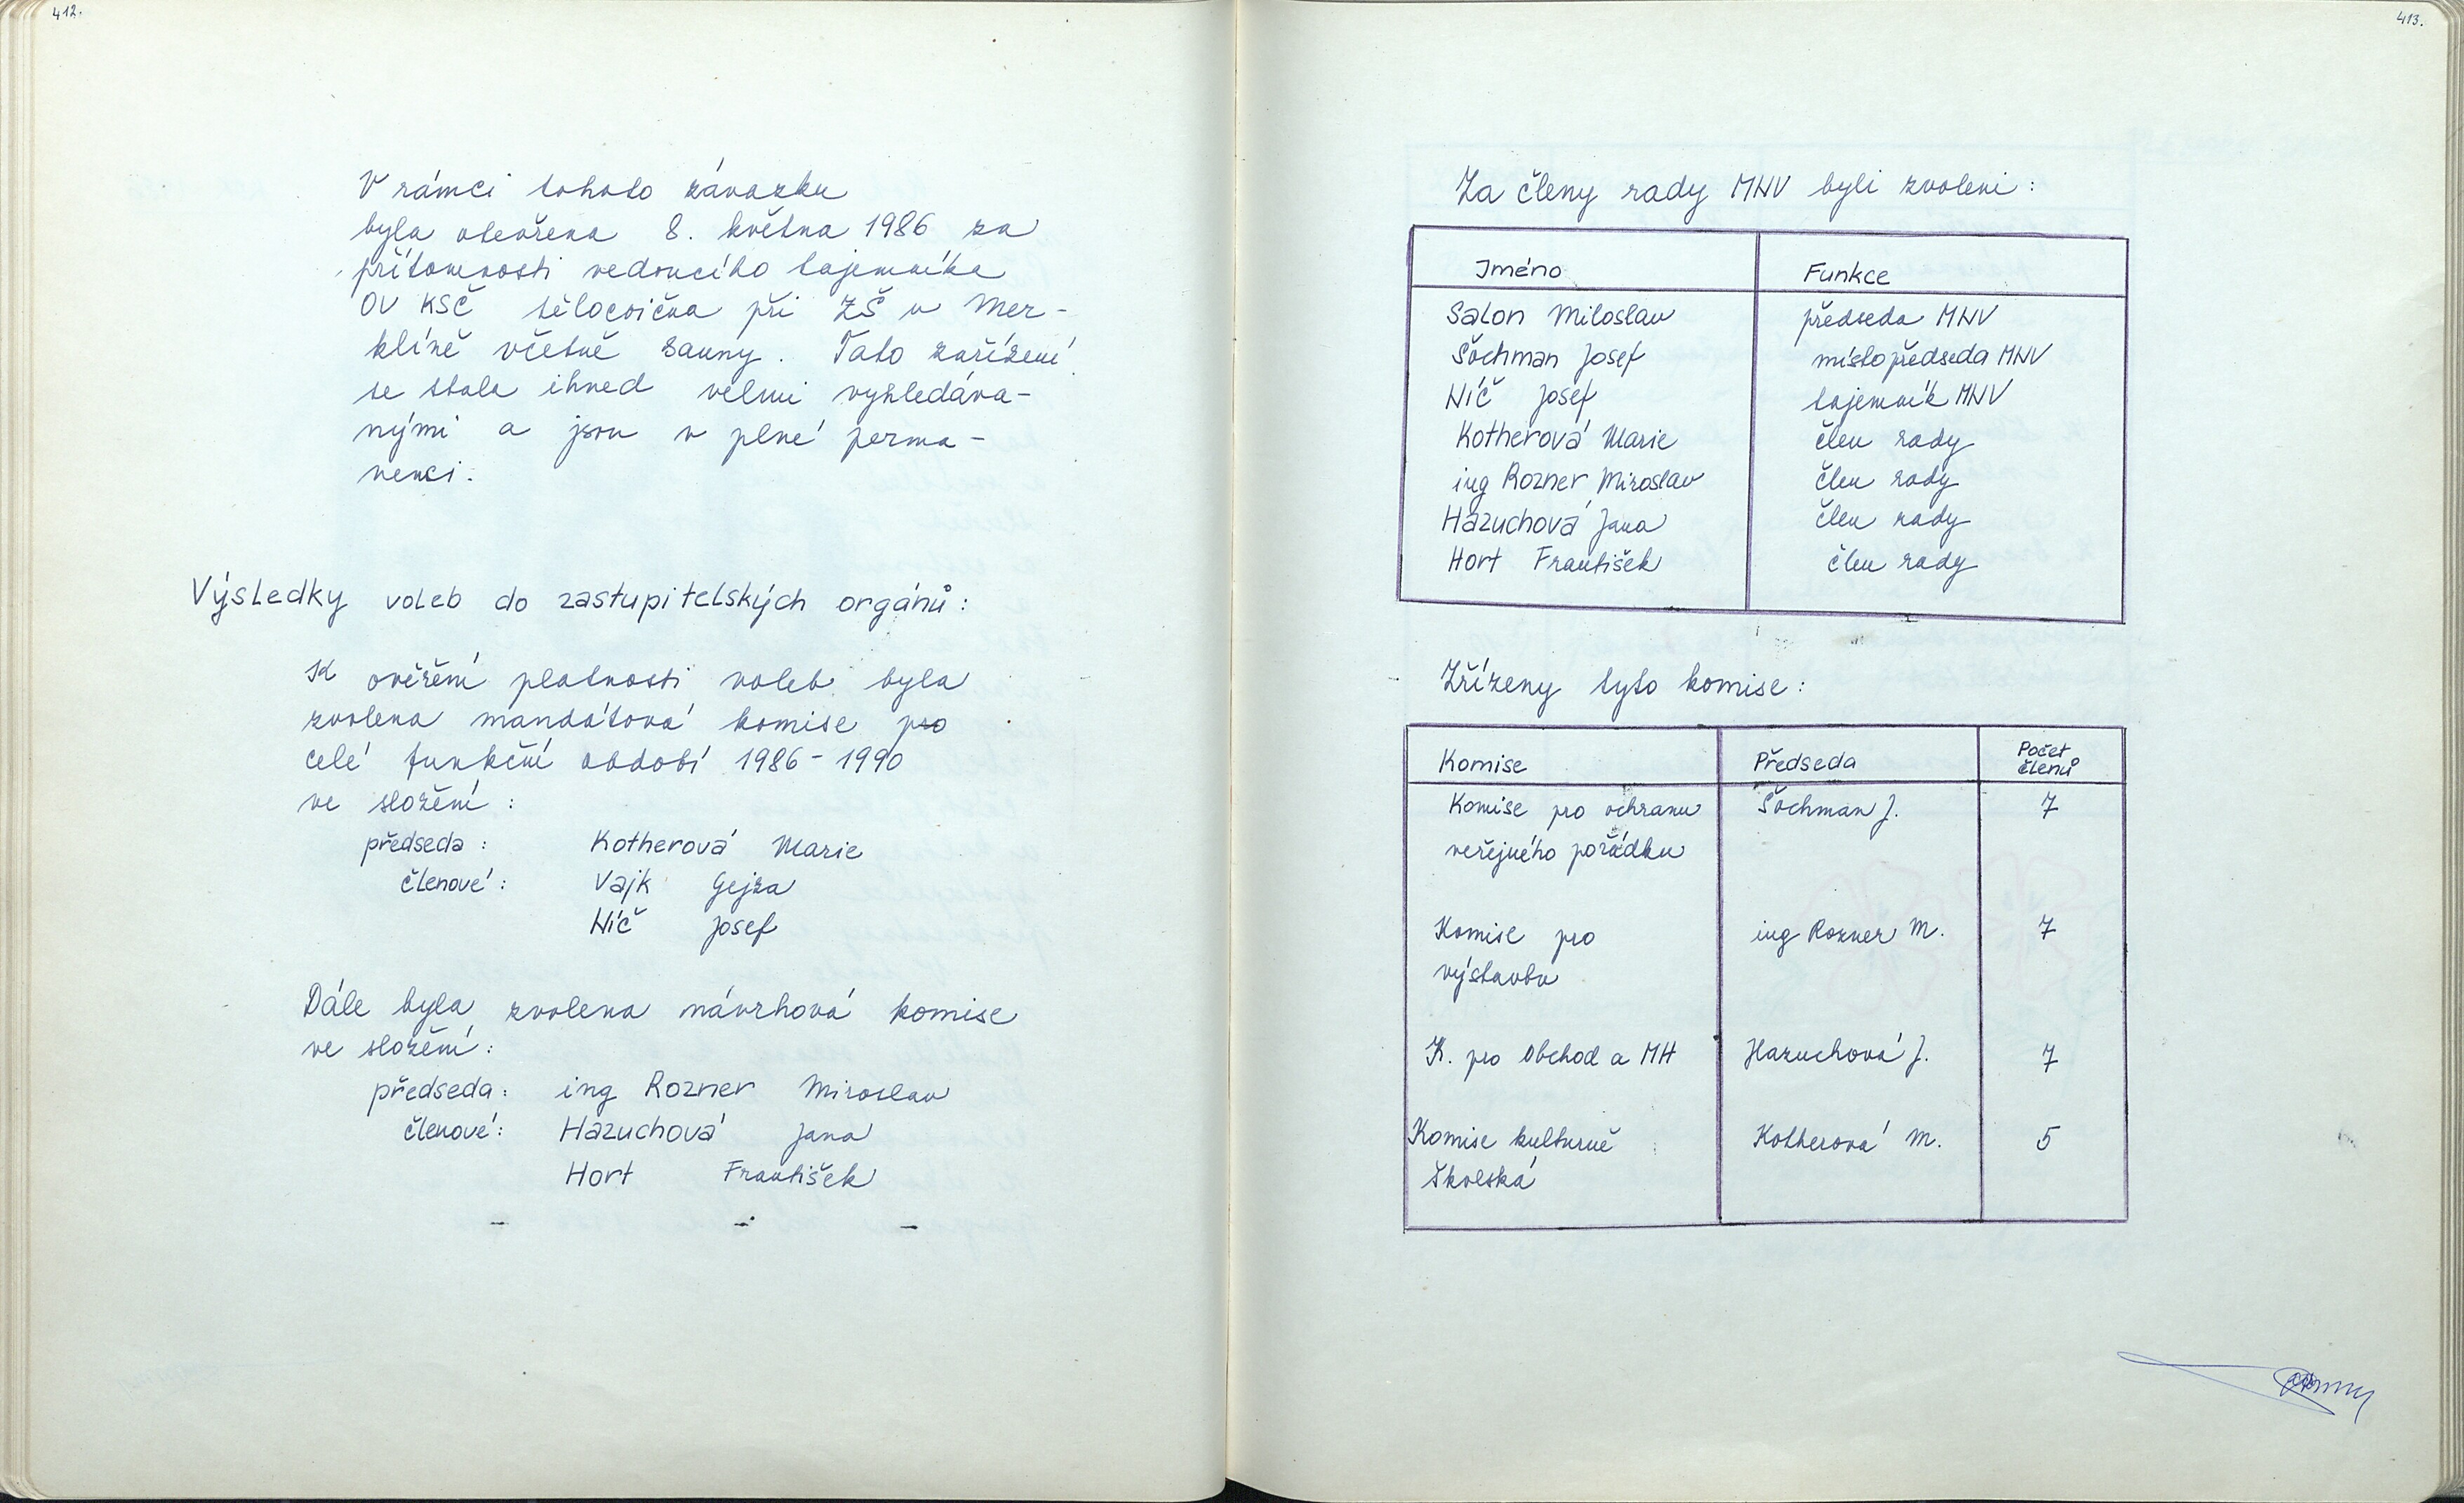 412.
V rámci tohoto závazku
byla otevřena 8. května 1986 za
přítomnosti vedoucího tajemníka
OV KSČ tělocvična při ZŠ v Mer-
klíně včetně sauny. Tato zařízení
se stala ihned velmi vyhledáva-
nými a jsou v plné perma-
nenci.
Výsledky voleb do zastupitelských orgánů:
K ověření platnosti voleb byla
zvolena mandátová komise pro
celé funkční období 1986 - 1990
ve složení:
předseda: Kotherová Marie
členové: Vajk Gejza
Níč Josef
Dále byla zvolena návrhová komise
ve složení:
předseda: ing Rozner Miroslav
členové: Hazuchová Jana
Hort František
- - -
413.
Za členy rady MNV byli zvoleni:
Jméno Funkce
Salon Miloslav předseda MNV
Šochman Josef místopředseda MNV
Níč Josef tajemník MNV
Kotherová Marie člen rady
ing Rozner Miroslav člen rady
Hazuchová Jana člen rady
Hort František člen rady
Zřízeny tyto komise:
Komise Předseda Počet
členů
Komise pro ochranu Šochman J. 7
veřejného pořádku
Komise pro ing Rozner M. 7
výstavbu
K. pro obchod a MH Hazuchová J. 7
Komise kulturně Kotherová M. 5
školská